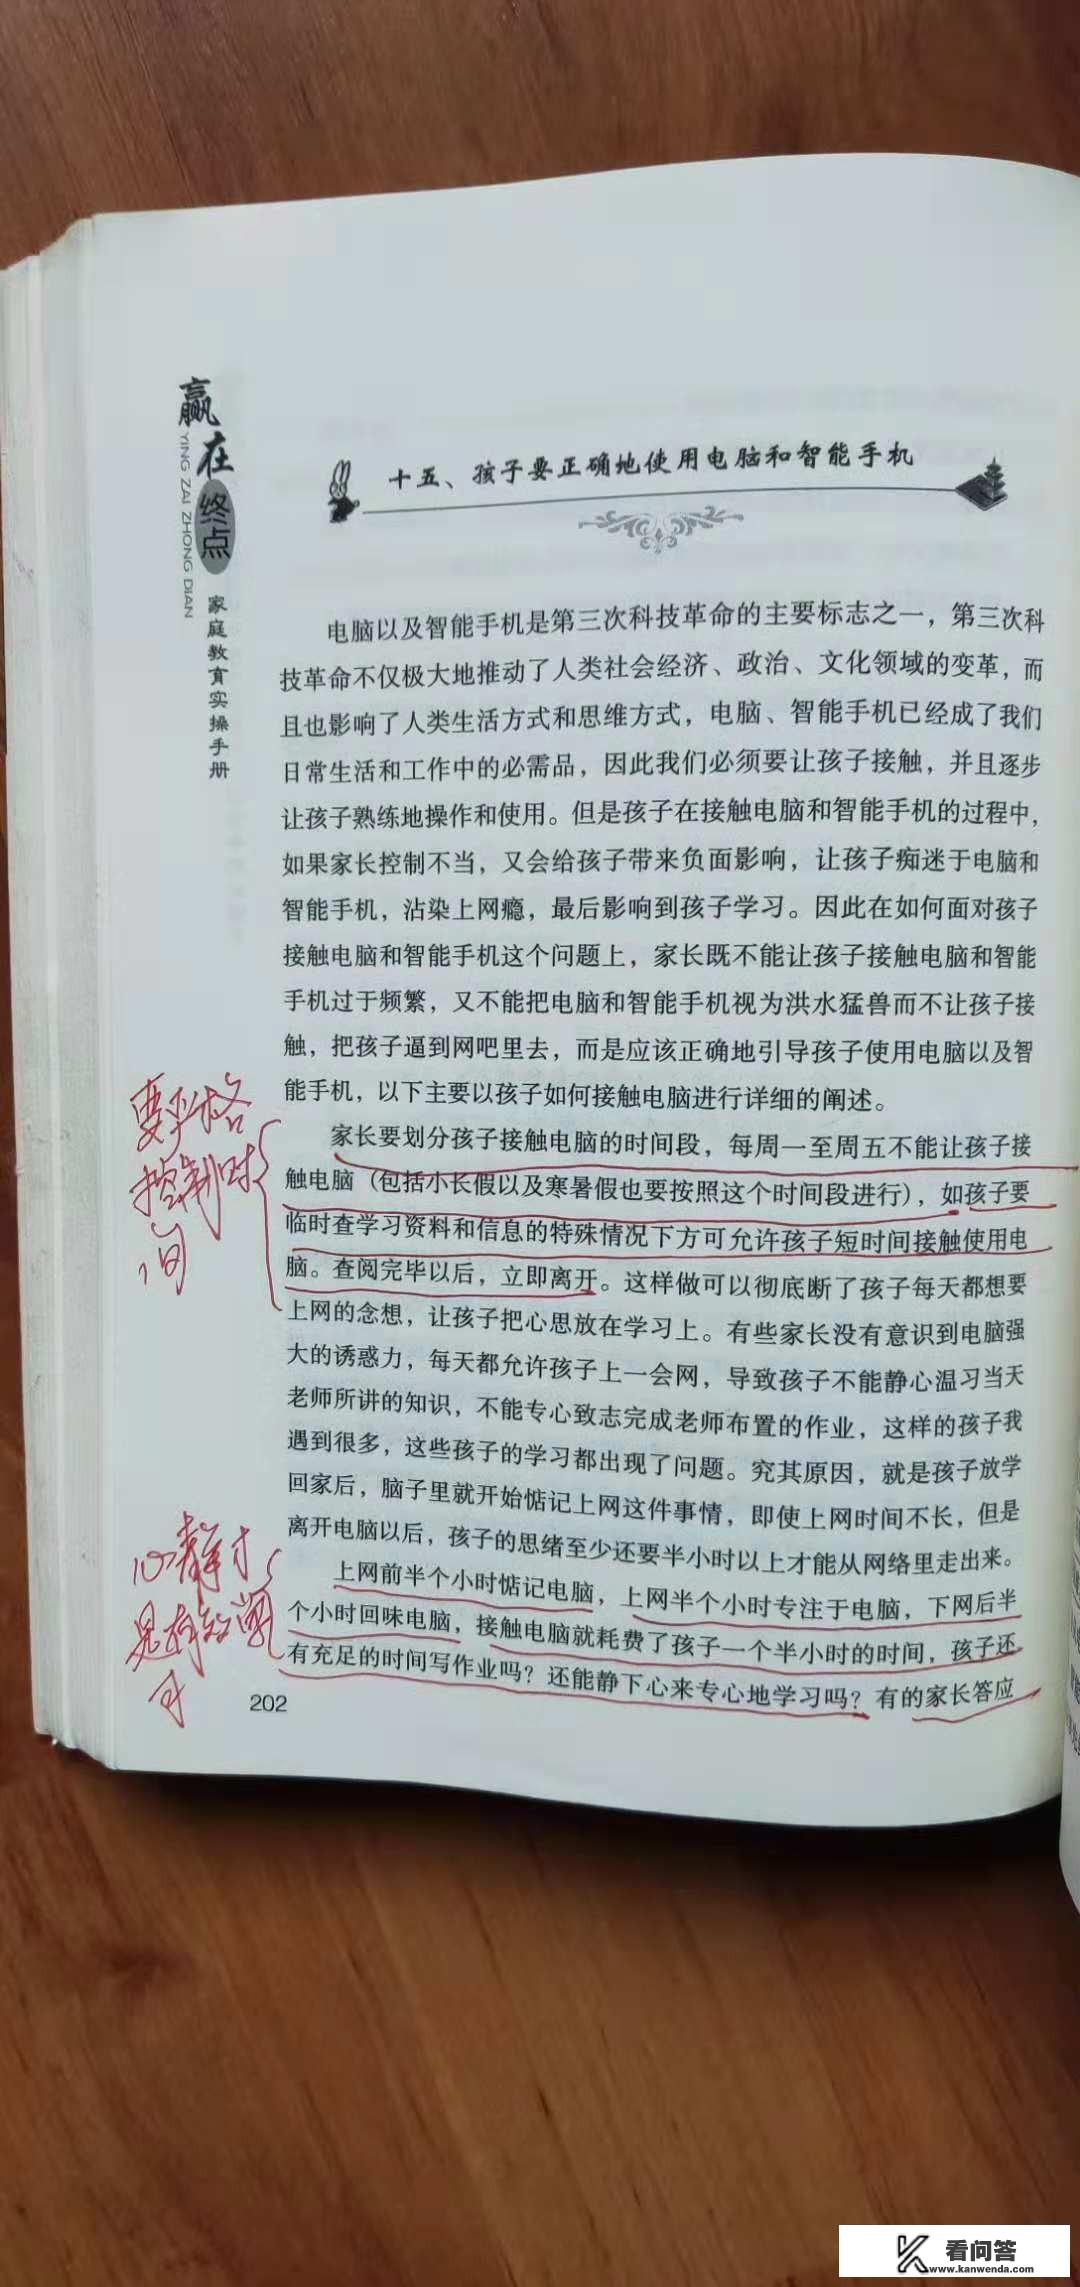 赢在终点
YING ZAI ZHONG DIAN
家庭教育实操手册
十五、孩子要正确地使用电脑和智能手机
电脑以及智能手机是第三次科技革命的主要标志之一，第三次科
技革命不仅极大地推动了人类社会经济、政治、文化领域的变革，而
且也影响了人类生活方式和思维方式，电脑、智能手机已经成了我们
日常生活和工作中的必需品，因此我们必须要让孩子接触，并且逐步
让孩子熟练地操作和使用。但是孩子在接触电脑和智能手机的过程中，
如果家长控制不当，又会给孩子带来负面影响，让孩子痴迷于电脑和
智能手机，沾染上网瘾，最后影响到孩子学习。因此在如何面对孩子
接触电脑和智能手机这个问题上，家长既不能让孩子接触电脑和智能
手机过于频繁，又不能把电脑和智能手机视为洪水猛兽而不让孩子接
触，把孩子逼到网吧里去，而是应该正确地引导孩子使用电脑以及智
能手机，以下主要以孩子如何接触电脑进行详细的阐述。
家长要划分孩子接触电脑的时间段，每周一至周五不能让孩子接
触电脑（包括小长假以及寒暑假也要按照这个时间段进行），如孩子要
临时查学习资料和信息的特殊情况下方可允许孩子短时间接触使用电
脑。查阅完毕以后，立即离开。这样做可以彻底断了孩子每天都想要
上网的念想，让孩子把心思放在学习上。有些家长没有意识到电脑强
大的诱惑力，每天都允许孩子上一会网，导致孩子不能静心温习当天
老师所讲的知识，不能专心致志完成老师布置的作业，这样的孩子我
遇到很多，这些孩子的学习都出现了问题。究其原因，就是孩子放学
回家后，脑子里就开始惦记上网这件事情，即使上网时间不长，但是
离开电脑以后，孩子的思绪至少还要半小时以上才能从网络里走出来。
上网前半个小时惦记电脑，上网半个小时专注于电脑，下网后半
个小时回味电脑，接触电脑就耗费了孩子一个半小时的时间，孩子还
有充足的时间写作业吗？还能静下心来专心地学习吗？有的家长答应
202
要严格
控制时
间
心静才
是有效学
看问答
www.kanwenda.com